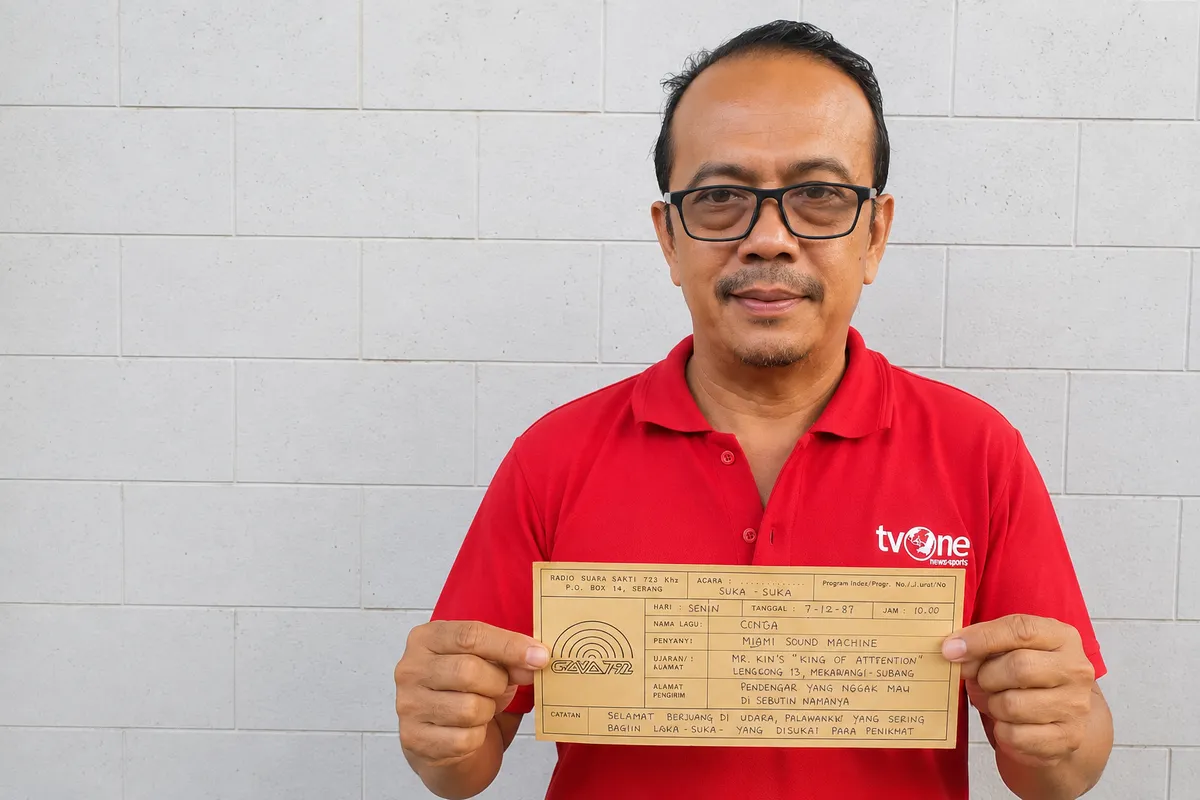 tvOne
news•sports
RADIO SUARA SAKTI 723 Khz
P.O. BOX 14, SERANG
ACARA : ............
SUKA - SUKA
Program Index/Progr. No./
HARI : SENIN
TANGGAL : 7-12-87
JAM : 10.00
NAMA LAGU:
CONGA
PENYANYI:
MIAMI SOUND MACHINE
UJARAN/ :
MR. KIN'S "KING OF ATTENTION"
LENGCONG 13, MEKARWANGI - SUBANG
ALAMAT
PENGIRIM
PENDENGAR YANG NGGAK MAU
DI SEBUTIN NAMANYA
CATATAN
SELAMAT BERJUANG DI UDARA, YANG SERING
- SUKA - YANG DISUKAI PARA PENIKMAT